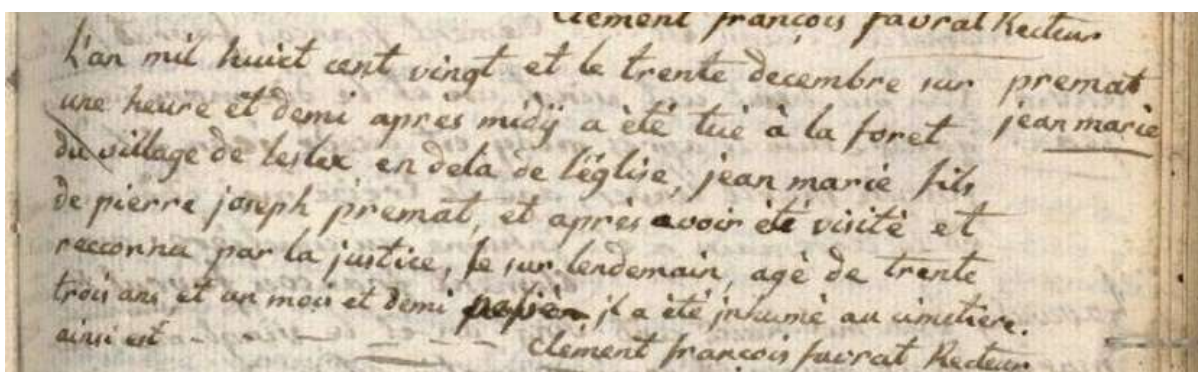 Clement françois favrat Recteur
L'an mil huict cent vingt et le trente decembre sur
premat
jean marie
une heure et demi apres midÿ a èté tué à la foret
du village de leslex en dela de l'église, jean marie fils
de pierre joseph premat, et après avoir èté visité et
recconnu par la justice, le sur lendemain, agè de trente
trois ans, et un mois et demi il a été inhumé au cimetiere.
ainsi est
Clement françois favrat Recteur